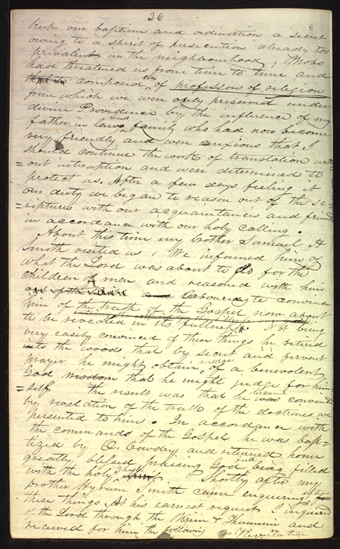 36
kept our baptism and ordination a secret
owing to a spirit of persecution already too
prevalent in the neighbourhood; Mobs
had threatened us from time to time and
composed of professors of religion
from which we were only preserved under
divine Providence by the influence of my
father in law's family who had now become
very friendly and were anxious that I
should continue the work of translation with
-out interuption and were determined to
protect us. After a few days feeling it
our duty we began to reason out of the sc-
-riptures with our acquaintances and friends
in accordance with our holy calling.
About this time my brother Samuel H
Smith visited us; We informed him of
what the Lord was about to do for the
children of men and reasoned with him
labouring to convince
him of the truth of the Gospel now about
to be revealed in its fullness. Not being
very easily convinced of these things he retired
into the woods that by secret and fervent
prayer he might obtain of a benevolent
God wisdom that he might judge for him
-self. The result was that he became convinced
by revelation of the truth of the doctrines we
presented to him. In accordance with
the commands of the Gospel he was bap-
-tized by O. Cowdry and returned home
greatly blessed praising God being filled
with the holy Shortly after my
brother Hyrum Smith came enquiring
these things, At his earnest request I inquired
of the Lord through the Urim & Thummim and
received for him the following Revelation